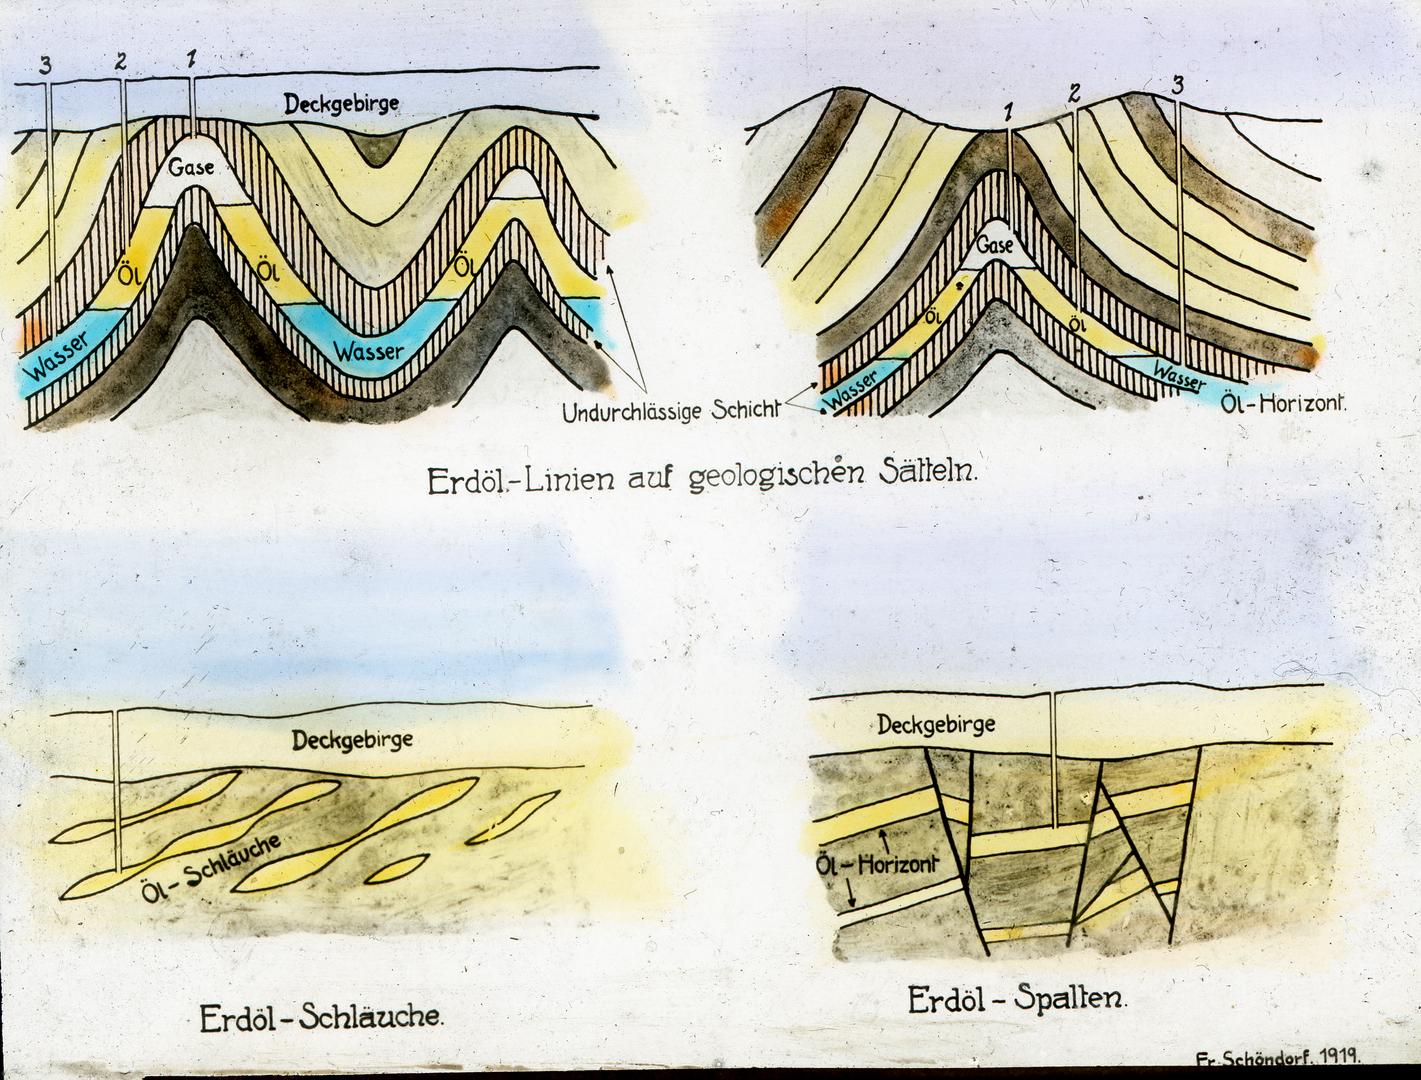 3 2 1
Deckgebirge
Gase
Öl Öl Öl
Wasser Wasser
1 2 3
Gase
Öl Öl
Wasser Wasser
Undurchlässige Schicht
Öl-Horizont.
Erdöl-Linien auf geologischen Sätteln.
Deckgebirge
Öl-Schläuche
Erdöl-Schläuche.
Deckgebirge
Öl-Horizont
Erdöl-Spalten.
Fr. Schöndorf. 1919.